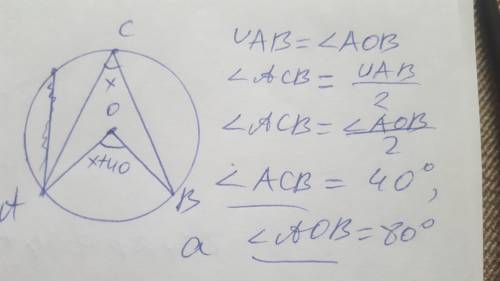 C
x
O
x+40
A
B
a
∪AB=∠AOB
∠ACB= ∪AB/2
∠ACB= ∠AOB/2
∠ACB = 40°,
∠AOB=80°